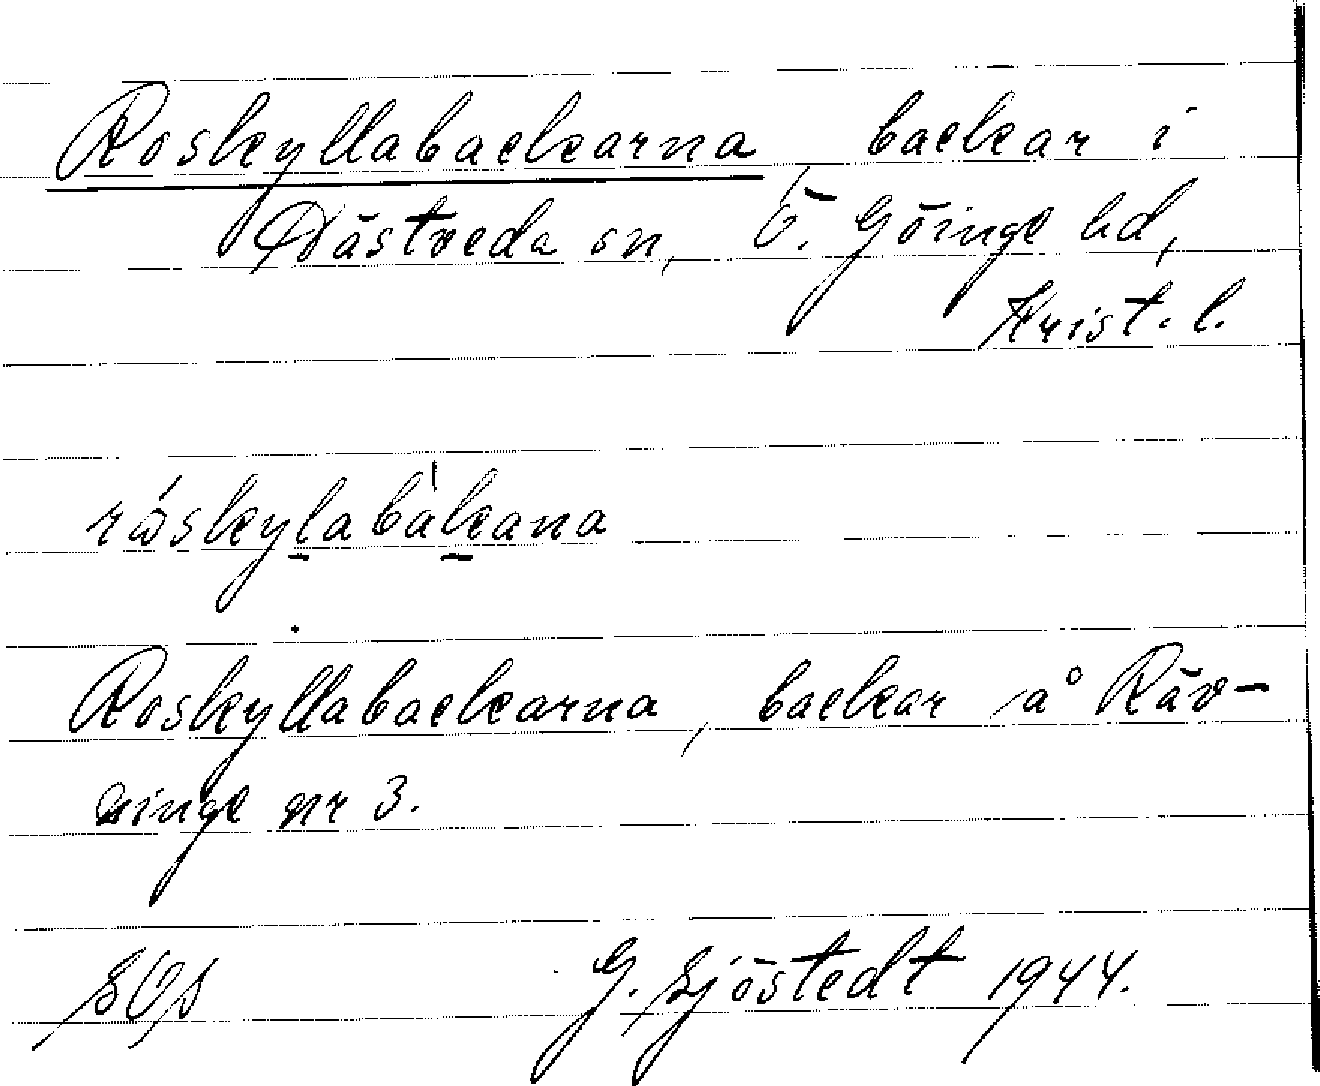 Roskyllabackarna backar i
Wästveda sn, Ö. Göinge hd,
Krist. l.
råskylabakana
Roskyllabackarna, backar å Räv-
ninge nr 3.
SOS G. Sjöstedt 1944.